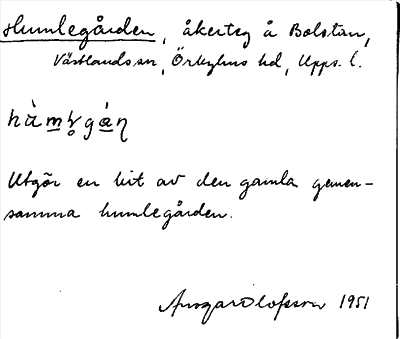 Humlegården, åkerteg å Bolstan,
Västlands sn, Örbyhus hd, Upps. l.
hàmlgán
Utgör en bit av den gamla gemen-
samma humlegården.
Ansgar Olofsson 1951